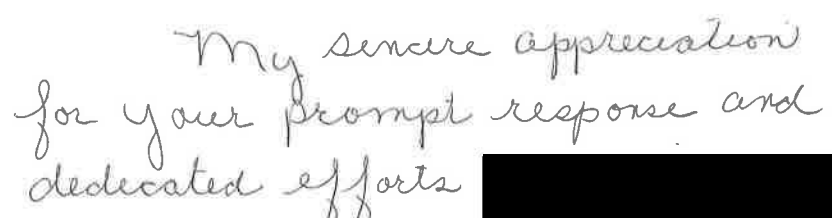 My sincere appreciation
for your prompt response and
dedicated efforts